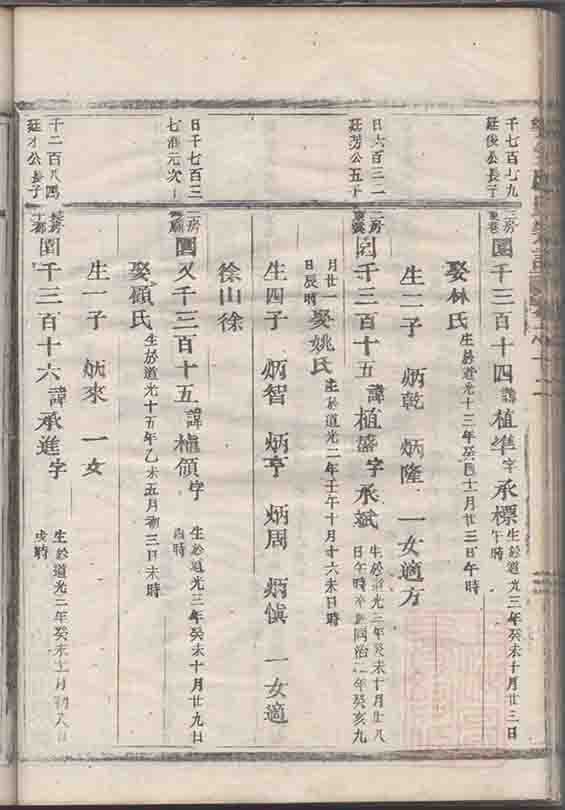 千七百七九
廷後公長子
三房
東巷
園千三百十四 諱植準字承標 生於道光三年癸未十月廿三日
午時
娶林氏 生於道光十三年癸巳十二月廿三日午時
生二子 炳乾 炳隆 一女適方
日六百三二
廷芳公五子
二房
園千三百十五 諱植盛字承斌 生於道光三年癸未十月廿八
日午時卒於同治二年癸亥九
月廿一
日辰時 娶姚氏 生於道光二年壬午十月十六未日時
生四子 炳智 炳亨 炳周 炳慎 一女適
徐山徐
日千七百三
七淮元次子
三房
園又千三百十五 諱植領字 生於道光三年癸未十月廿九日
酉時
娶顧氏 生於道光十五年乙未五月初三日未時
生一子 炳來 一女
千二百八四
廷才公長子
園千三百十六 諱承進字 生於道光三年癸未十二月初八日
戌時